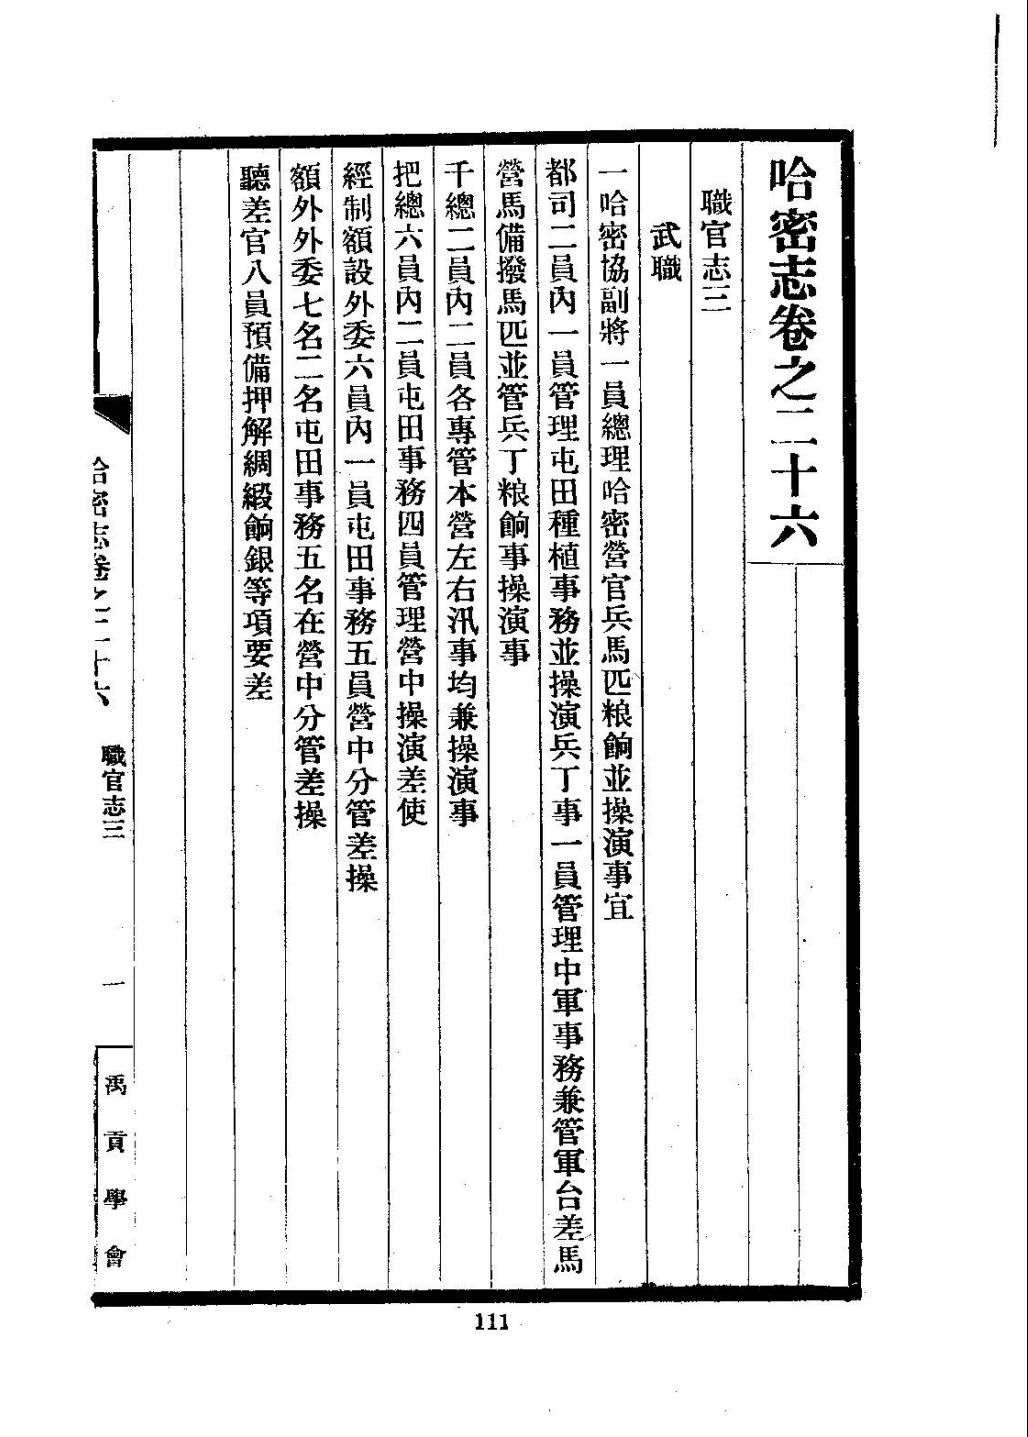 哈密志卷之二十六
職官志三
武職
一哈密協副將一員總理哈密營官兵馬匹粮餉並操演事宜
都司二員內一員管理屯田種植事務並操演兵丁事一員管理中軍事務兼管軍台差馬
營馬備撥馬匹並管兵丁粮餉事操演事
千總二員內二員各專管本營左右汛事均兼操演事
把總六員內二員屯田事務四員管理營中操演差使
經制額設外委六員內一員屯田事務五員營中分管差操
額外外委七名二名屯田事務五名在營中分管差操
聽差官八員預備押解綢緞餉銀等項要差
哈密志卷之二十六 職官志三 一 禹貢學會
111